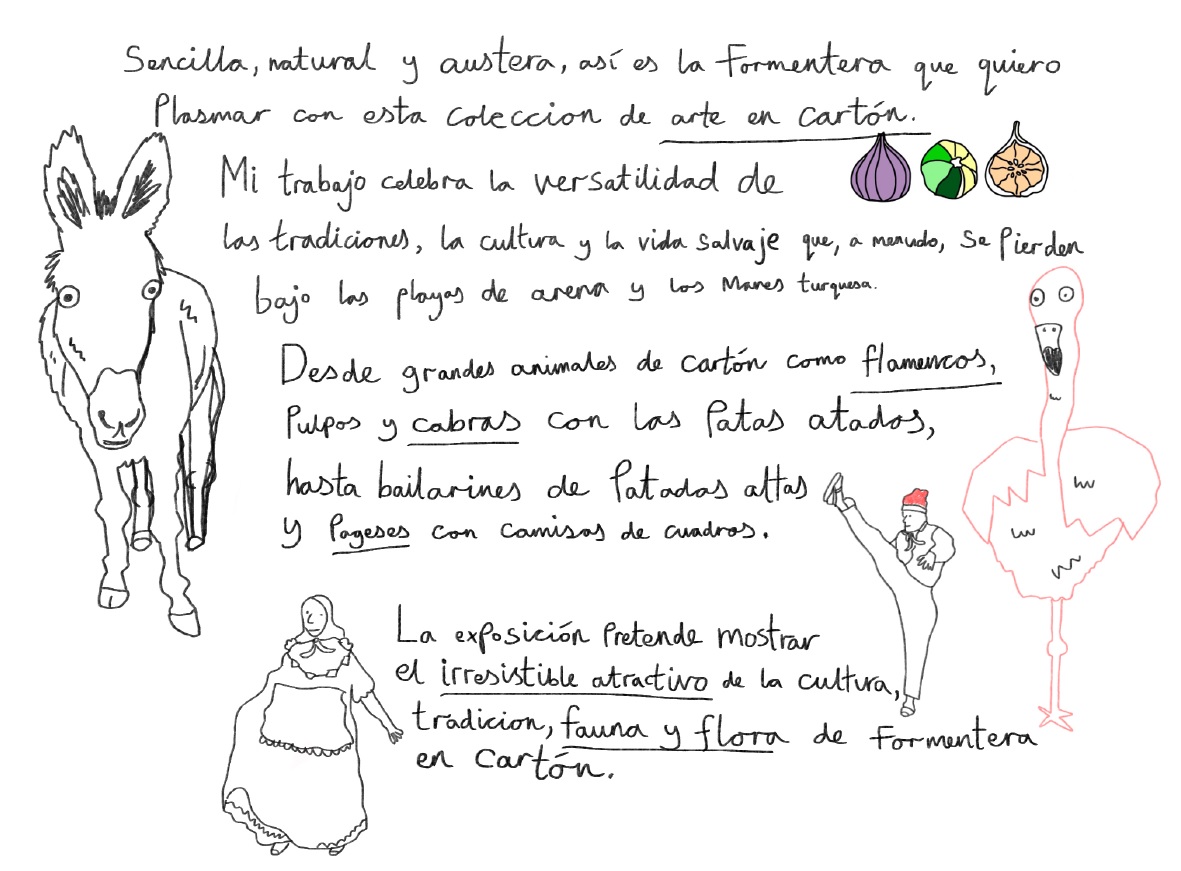 Sencilla, natural y austera, así es la Formentera que quiero
Plasmar con esta coleccion de arte en cartón.
Mi trabajo celebra la versatilidad de
las tradiciones, la cultura y la vida salvaje que, a menudo, se pierden
bajo las playas de arena y los Mares turquesa.
Desde grandes animales de cartón como flamencos,
Pulpos y cabras con las Patas atados,
hasta bailarines de Patadas altas
y Pageses con camisas de cuadros.
La exposición Pretende mostrar
el irresistible atractivo de la cultura,
tradicion, fauna y flora de Formentera
en cartón.